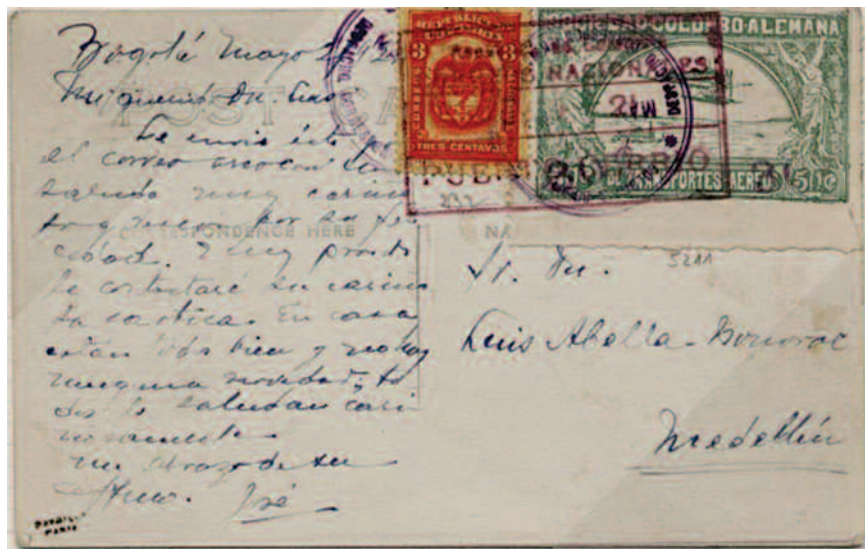 Bogotá Mayo 2
Mi querido Dr. Luis
Le envio este
el correo aereo con un
saludo muy cariño
so y por su feli
cidad. Y muy pronto
le contestaré su cariño
sa cartica. En casa
están todos bien y no hay
ninguna novedad; to
dos lo saludan cari
ñosamente
un abrazo de su
afmo. José
POST CA
CORRESPONDENCE HERE
NA
REPUBLICA DE COLOMBIA
CORREOS
3
3
TRES CENTAVOS
SOCIEDAD COLOMBO-ALEMANA
DE TRANSPORTES AEREOS
NACIONALES
MAY
PUERTO BERRIO
3211
Sr. Dr.
Luis Abella
Medellín
PARIS